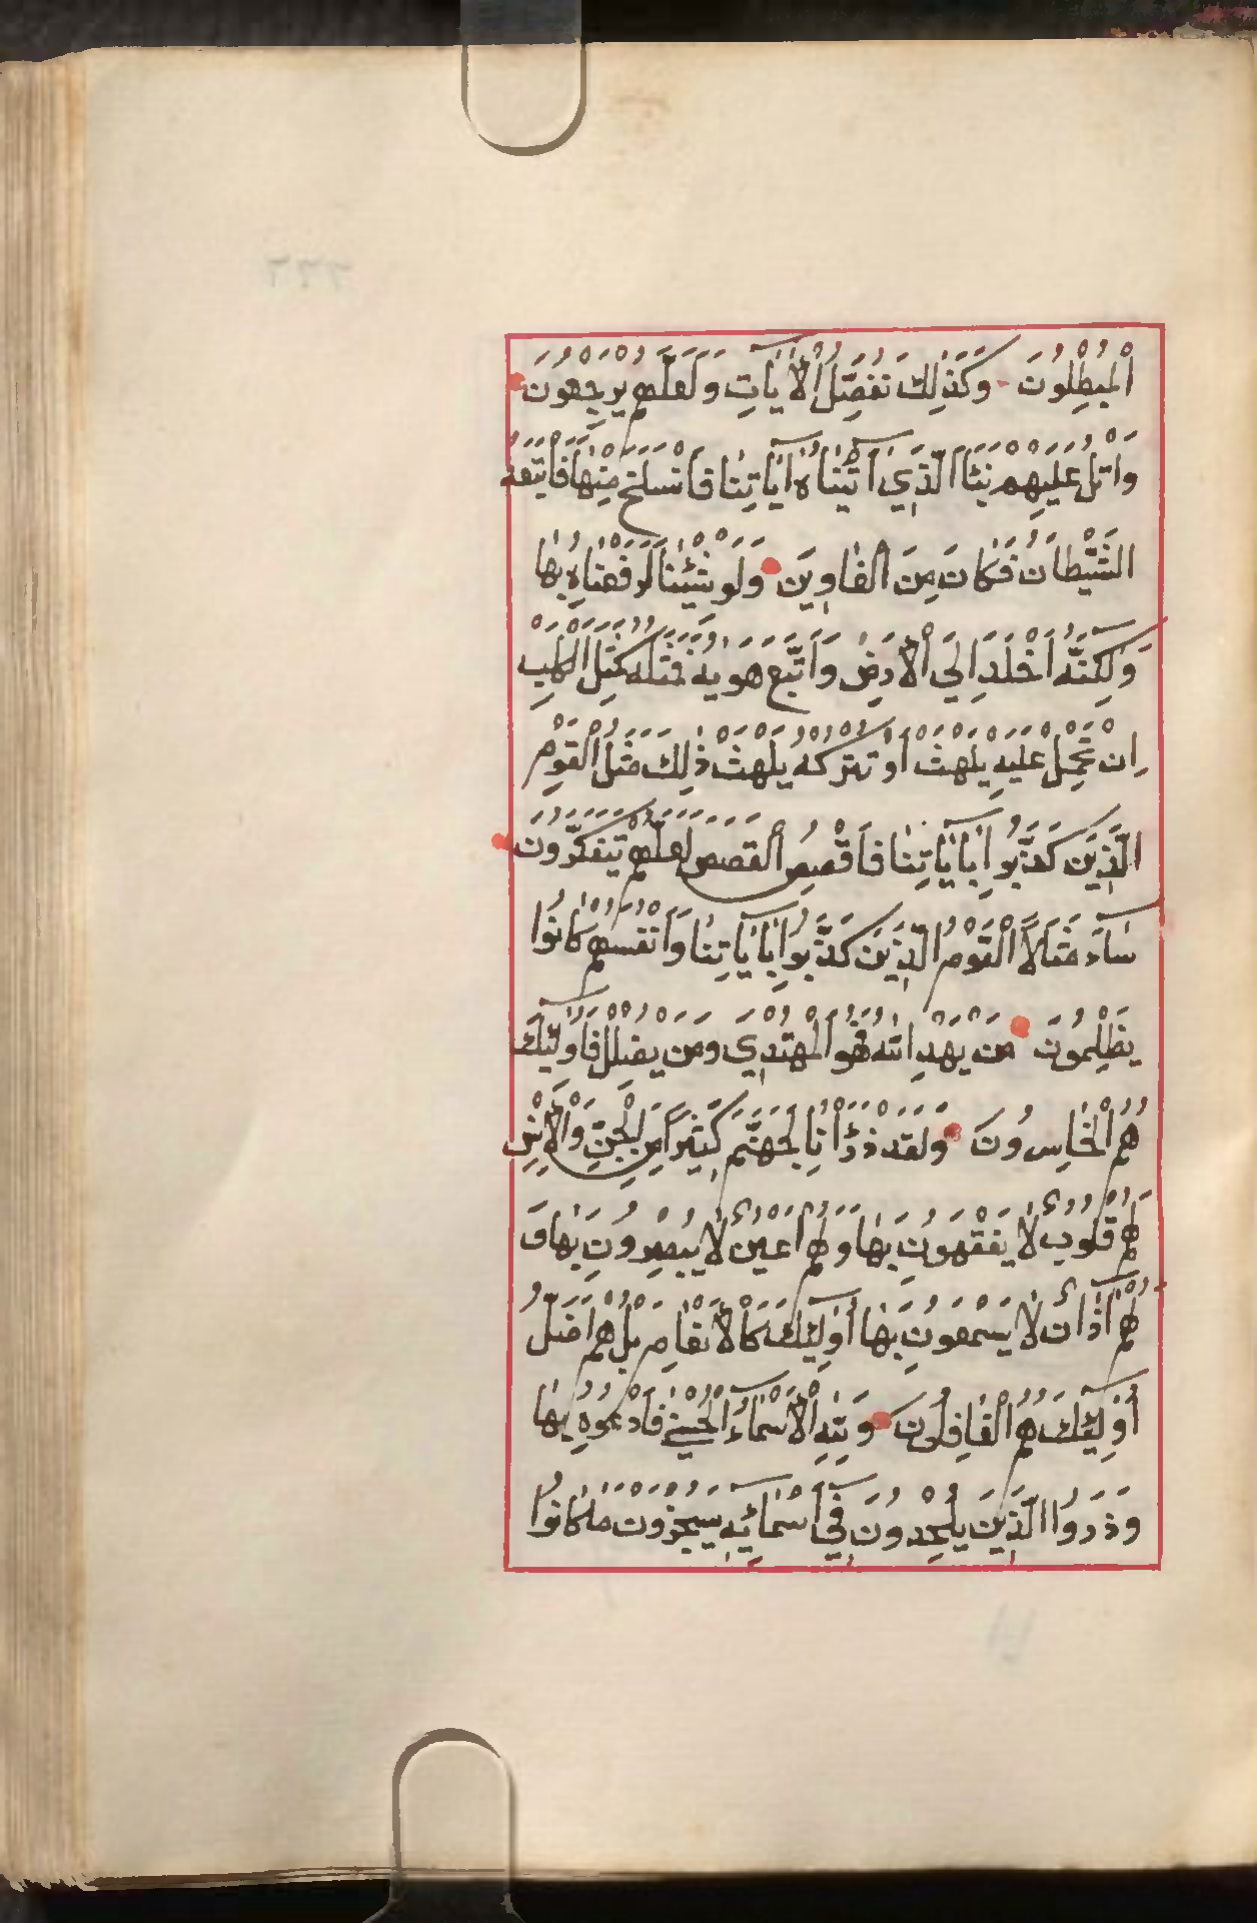 اَلْمُبْطِلُونَ وَكَذٰلِكَ نُفَصِّلُ اْلاٰيَاتِ وَلَعَلَّهُمْ يَرْجِعُونَ
وَاتْلُ عَلَيْهِمْ نَبَأَ الَّذِي اٰتَيْنَاهُ اٰيَاتِنَا فَانْسَلَخَ مِنْهَا فَاَتْبَعَهُ
الشَّيْطَانُ فَكَانَ مِنَ الْغَاوِينَ وَلَوْ شِئْنَا لَرَفَعْنَاهُ بِهَا
وَلٰكِنَّهُ اَخْلَدَ اِلَي اْلاَرْضِ وَاتَّبَعَ هَوٰيهُ فَمَثَلُهُ كَمَثَلِ الْكَلْبِ
اِنْ تَحْمِلْ عَلَيْهِ يَلْهَثْ اَوْ تَتْرُكْهُ يَلْهَثْ ذٰلِكَ مَثَلُ الْقَوْمِ
الَّذِينَ كَذَّبُوا بِاٰيَاتِنَا فَاقْصُصِ الْقَصَصَ لَعَلَّهُمْ يَتَفَكَّرُونَ
سَاءَ مَثَلاً الْقَوْمُ الَّذِينَ كَذَّبُوا بِاٰيَاتِنَا وَاَنْفُسَهُمْ كَانُوا
يَظْلِمُونَ مَنْ يَهْدِ اللّٰهُ فَهُوَ الْمُهْتَدِي وَمَنْ يُضْلِلْ فَاُولٰئِكَ
هُمُ الْخَاسِرُونَ وَلَقَدْ ذَرَأْنَا لِجَهَنَّمَ كَثِيراً مِنَ الْجِنِّ وَاْلاِنْسِ
لَهُمْ قُلُوبٌ لاَ يَفْقَهُونَ بِهَا وَلَهُمْ اَعْيُنٌ لاَ يُبْصِرُونَ بِهَا وَ
لَهُمْ اٰذَانٌ لاَ يَسْمَعُونَ بِهَا اُولٰئِكَ كَاْلاَنْعَامِ بَلْ هُمْ اَضَلُّ
اُولٰئِكَ هُمُ الْغَافِلُونَ وَلِلّٰهِ اْلاَسْمَاءُ الْحُسْنٰي فَادْعُوهُ بِهَا
وَذَرُوا الَّذِينَ يُلْحِدُونَ فِي اَسْمَائِهِ سَيُجْزَوْنَ مَا كَانُوا